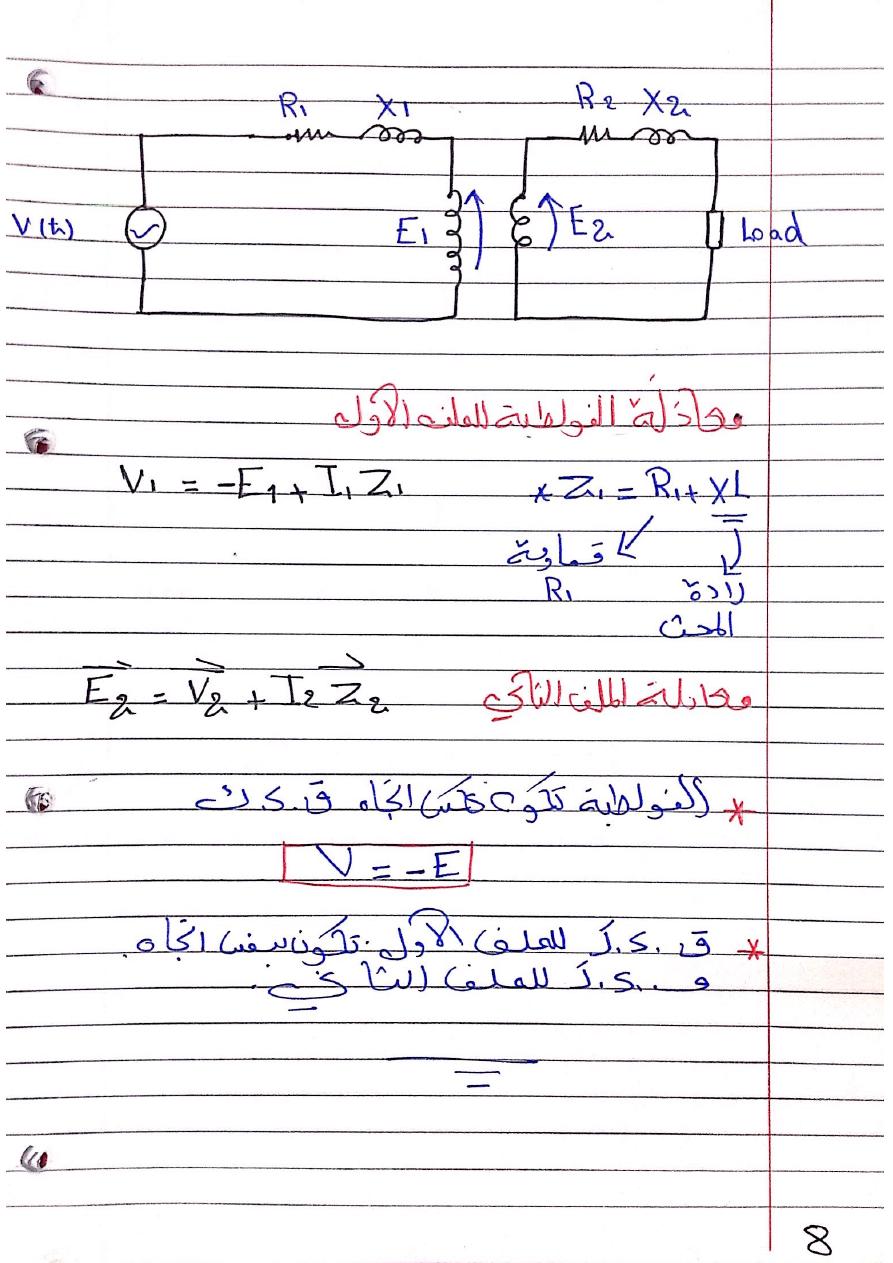 R1 X1 R2 X2
V(t) E1 E2 Load
معادلة الفولطية للملف الأول
V1 = -E1 + I1 Z1 * Z1 = R1 + XL
مقاومة رادة
R1 المحث
معادلة الملف الثاني E2 = V2 + I2 Z2
* الفولطية تكون عكس اتجاه ق.د.ك
V = -E
* ق.د.ك للملف الأول تكون بنفس اتجاه
ق.د.ك للملف الثاني.
8